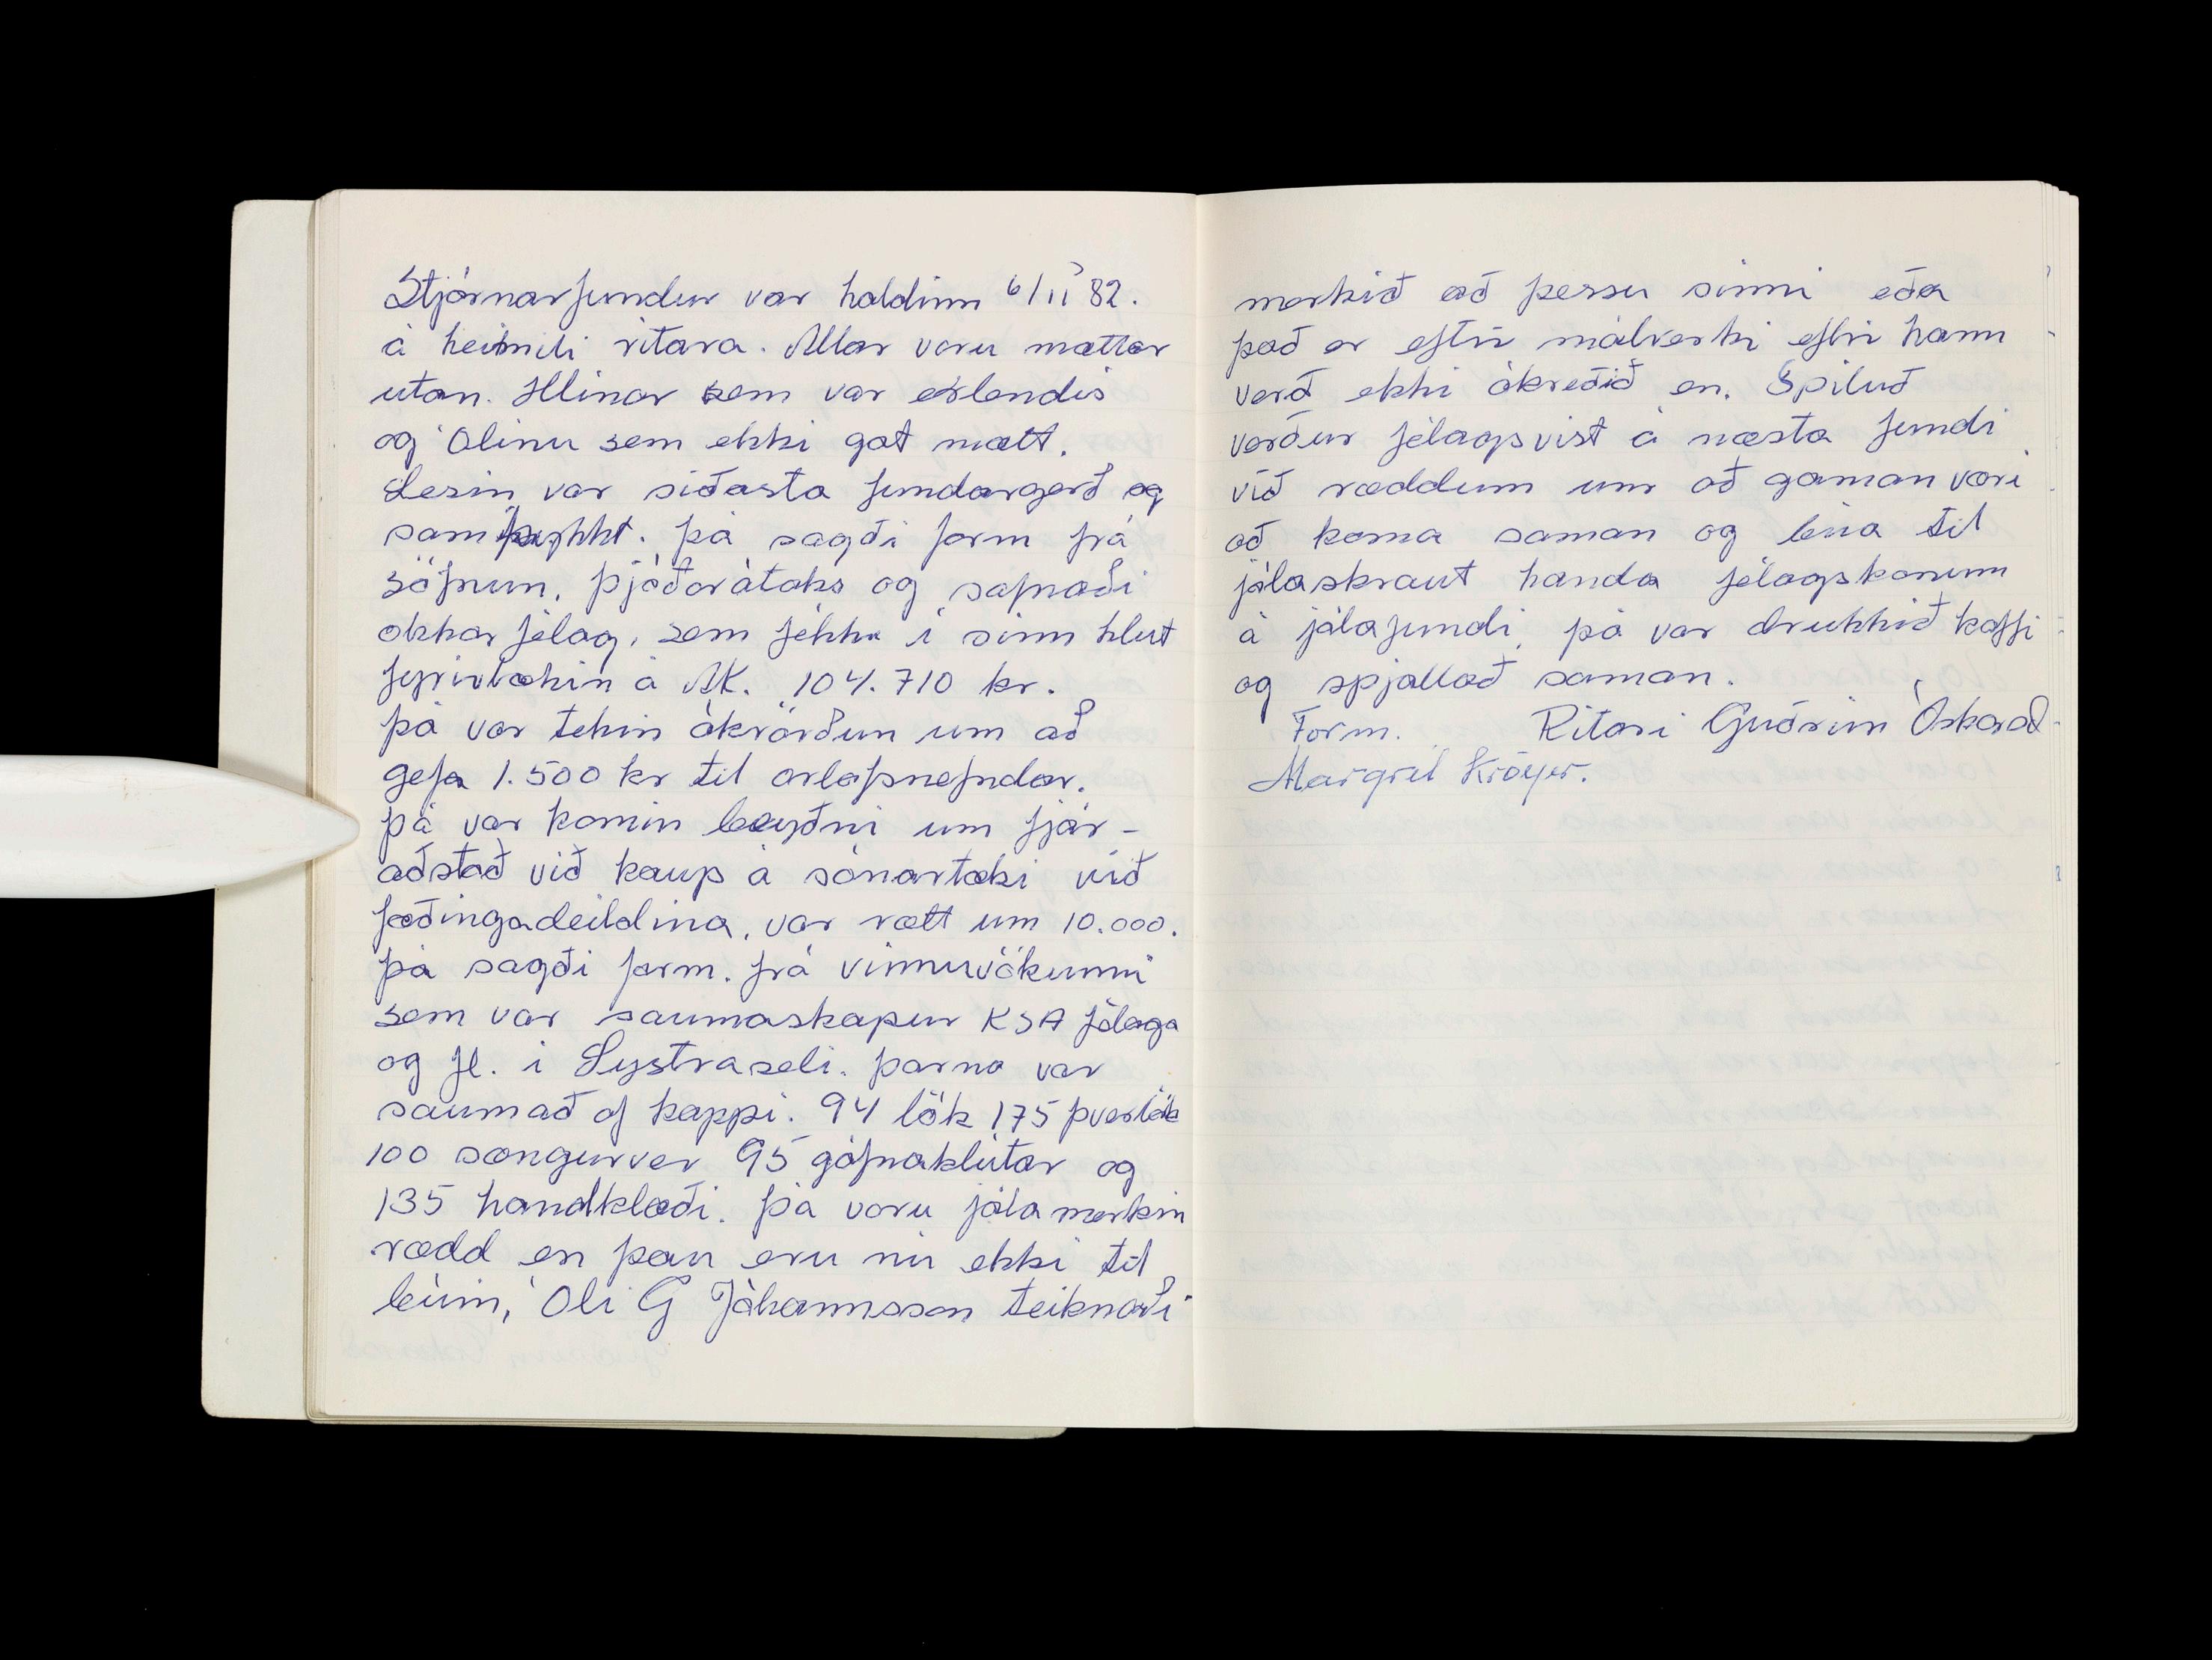 Stjórnarfundur var haldinn 6/11 '82.
á heimili ritara. Allar voru mættar
utan Hlínar sem var erlendis
og Ólínu sem ekki gat mætt.
Lesin var síðasta fundargerð og
samþykkt. þá sagði form frá
söfnun, þjóðarátaks og safnaði
okkar félag, sem fékk í sinn hlut
fyrirtækin á AK. 104.710 kr.
þá var tekin ákvörðun um að
gefa 1.500 kr til orlofsnefndar.
þá var komin beyðni um fjár-
aðstað við kaup á sónartæki við
fæðingadeildina, var rætt um 10.000.
þá sagði form. frá vinnuvökunni
sem var saumaskapur KSA félaga
og fl. í Lystraseli. þarna var
saumað af kappi. 94 lök 175 þverlök
100 sængurver 95 gófnaklútar og
135 handklæði. þá voru jóla merkin
rædd en þau eru nú ekki til
búin, Óli G Jóhannsson teiknaði
merkið að þessu sinni eða
það er eftir málverki eftir hann
verð ekki ákveðið en. Spiluð
verður félagsvist á næsta fundi
við ræddum um að gaman væri
að koma saman og búa til
jólaskraut handa félagskonum
á jólafundi, þá var drukkið kaffi
og spjallað saman.
Form. Ritari Guðrún Óskarsd
Margrét Kröyer.